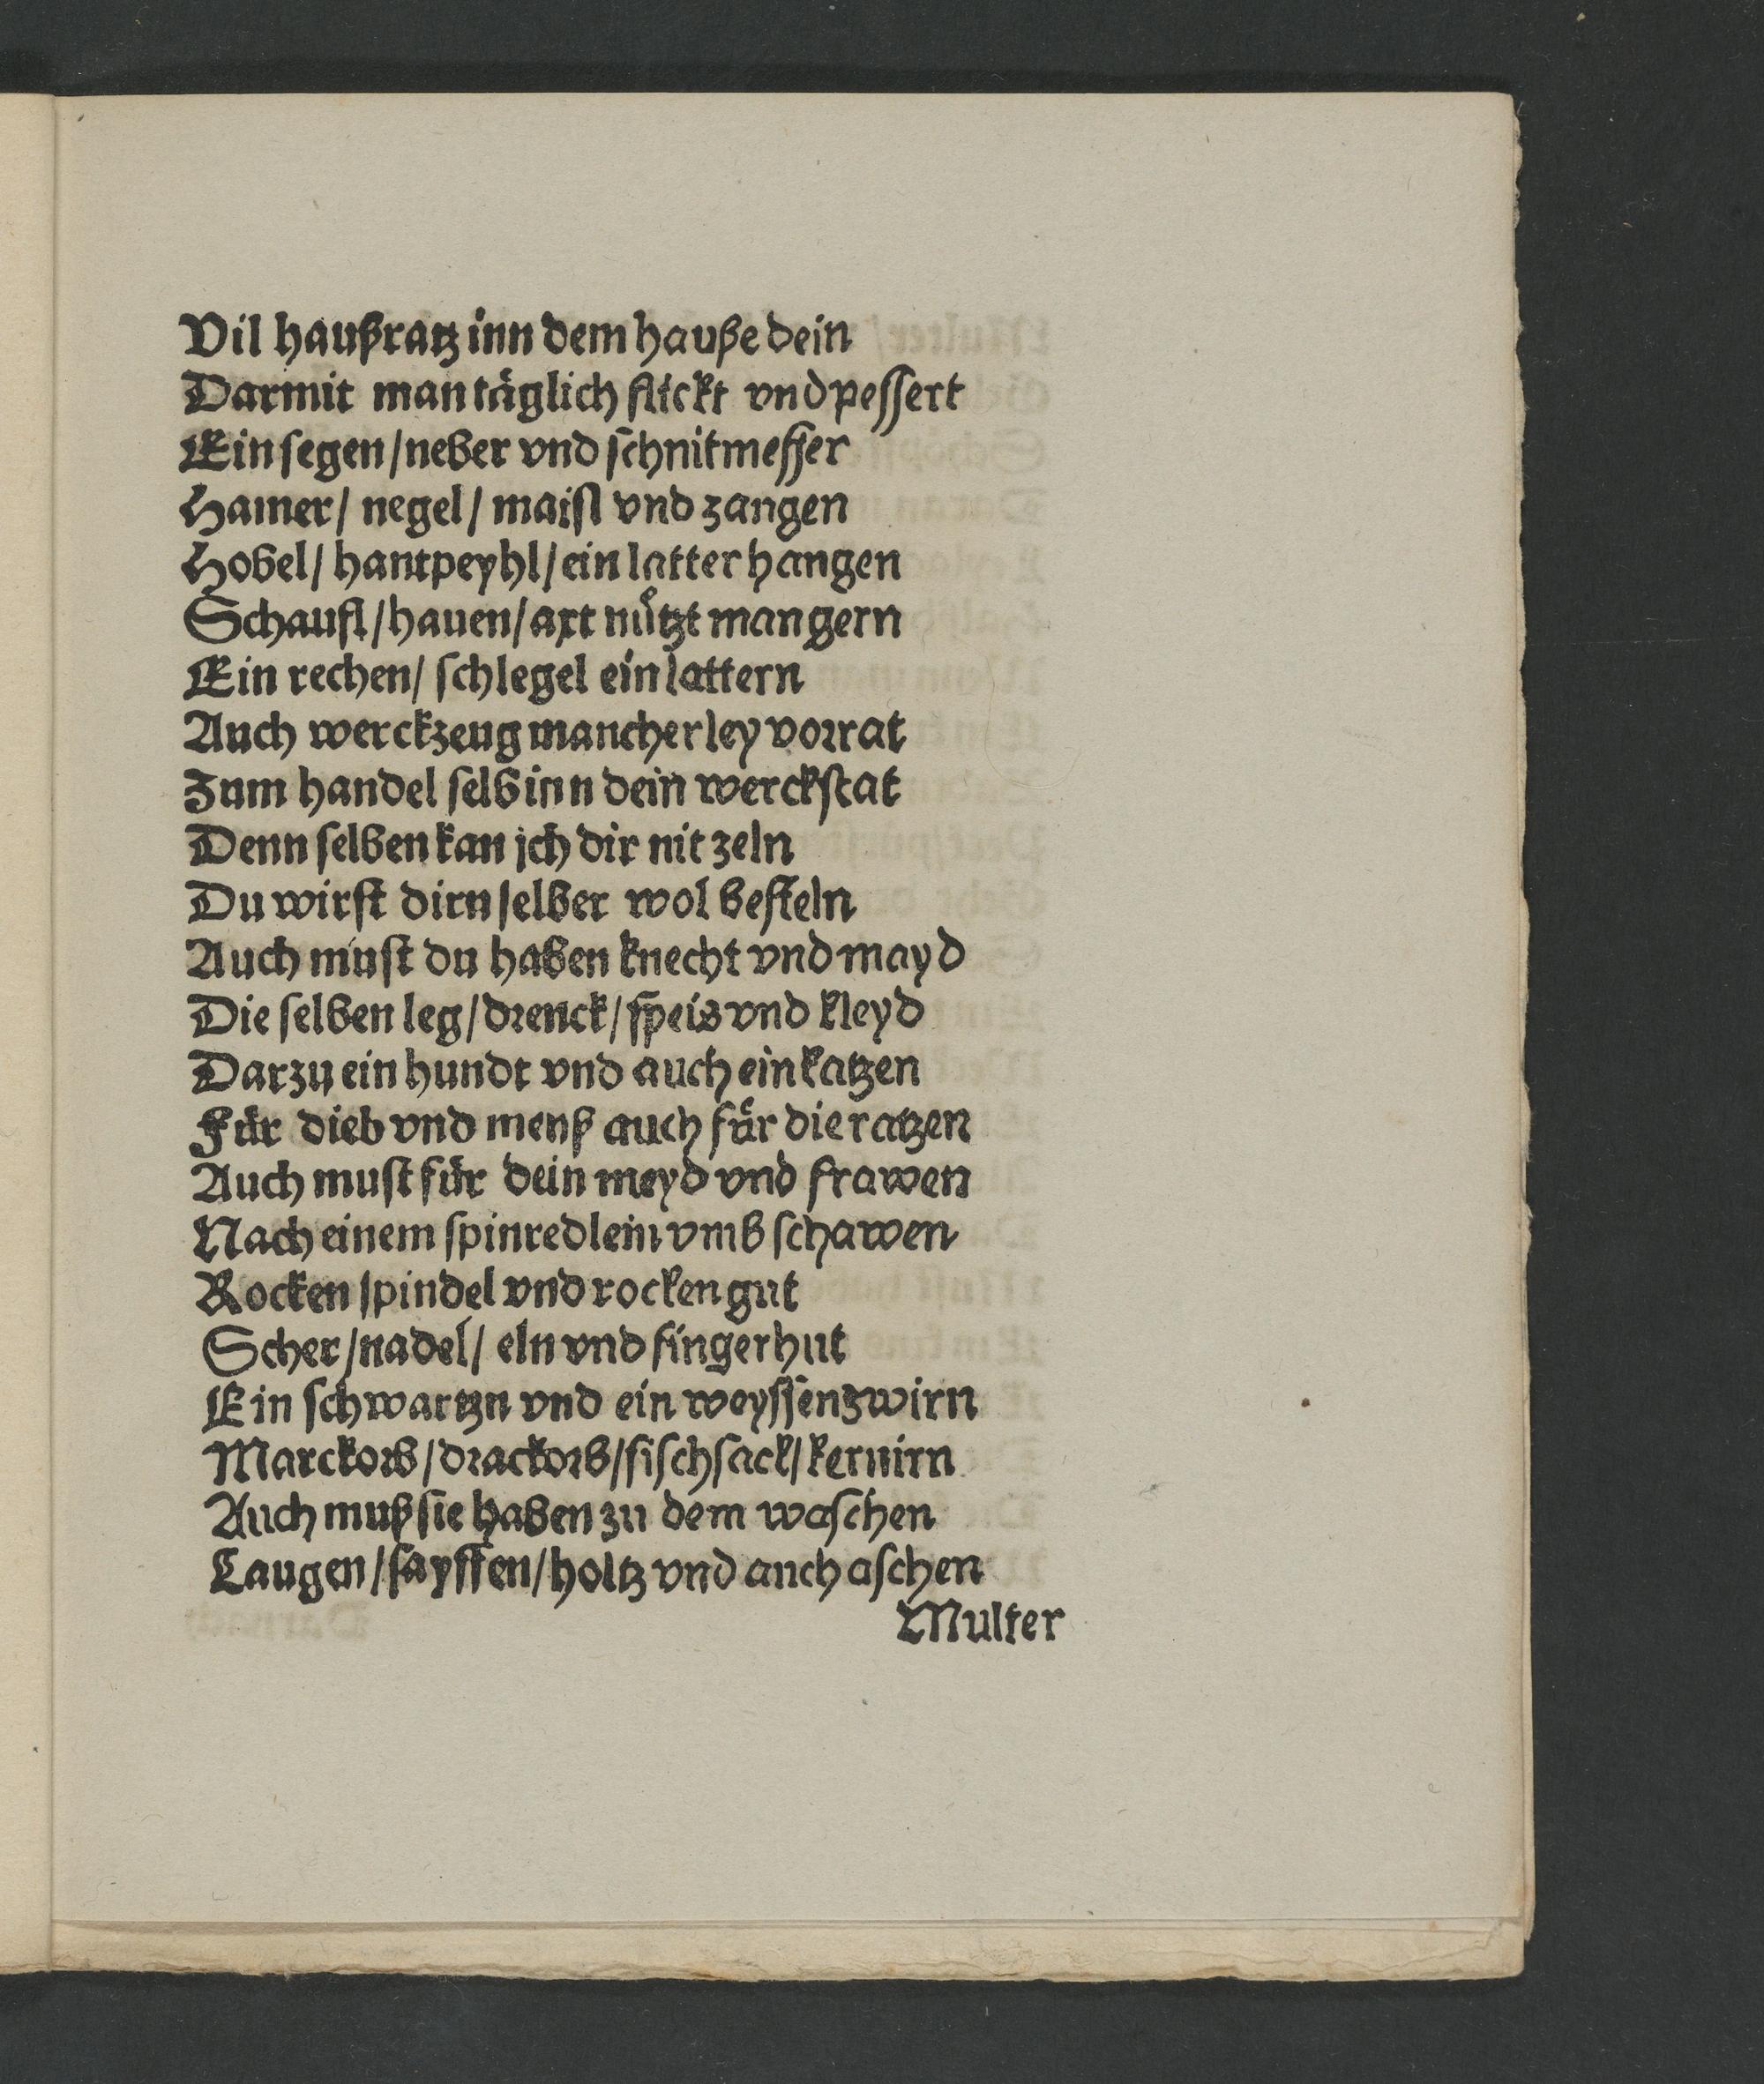 Vil haußratz inn dem hauße dein
Darmit man täglich flickt vnd pessert
Ein segen / neber vnd schnitmesser
Hamer / negel / maisl vnd zangen
Hobel / hantpeyhl / ein latter hangen
Schaufl / hauen / axt nützt man gern
Ein rechen / schlegel ein lattern
Auch werckzeug mancherley vorrat
Zum handel selb inn dein werckstat
Denn selben kan jch dir nit zeln
Du wirst dirn selber wol besteln
Auch must du haben knecht vnd mayd
Die selben leg / drenck / speis vnd kleyd
Darzu ein hundt vnd auch ein katzen
Für dieb vnd menß auch für die ratzen
Auch must für dein meyd vnd frawen
Nach einem spinredlein vmb schawen
Rocken spindel vnd rocken gut
Scher / nadel / eln vnd fingerhut
Ein schwartzn vnd ein weyssen zwirn
Marckorb / drackorb / fischsack / kernirn
Auch muß sie haben zu dem waschen
Laugen / sayffen / holtz vnd auch aschen
Multer